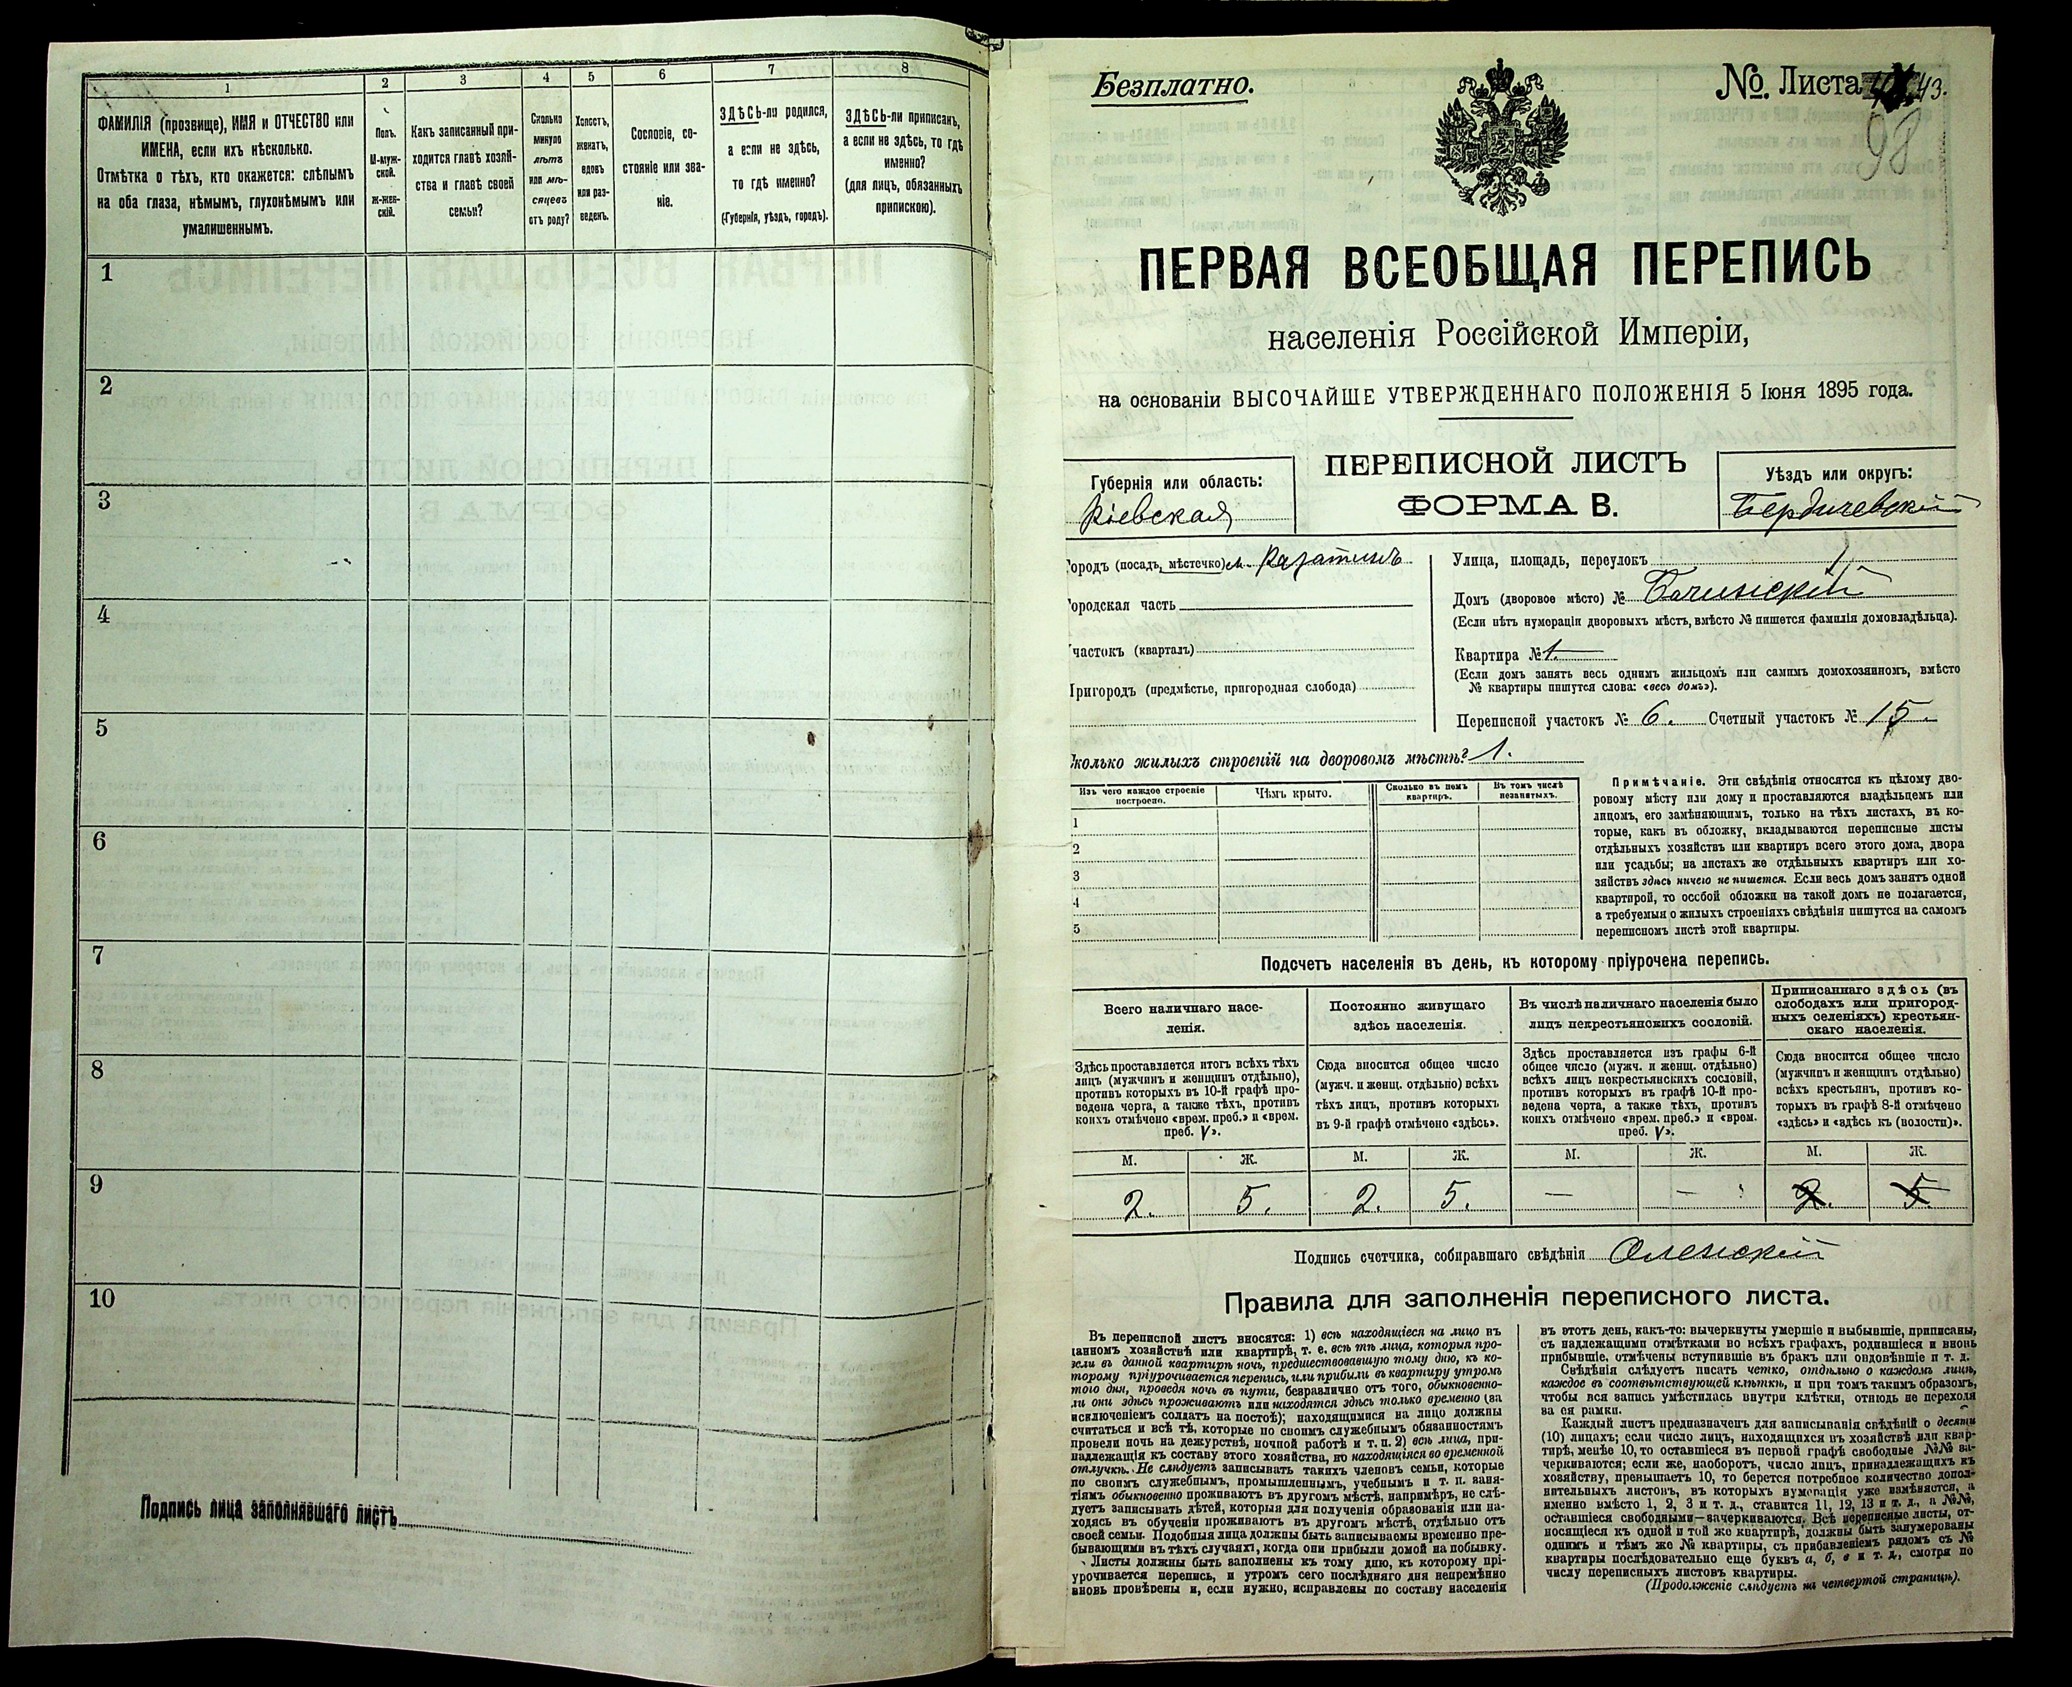 1 2 3 4 5 6 7 8
ФАМИЛІЯ (прозвище), ИМЯ и ОТЧЕСТВО или
ИМЕНА, если ихъ нѣсколько.
Отмѣтка о тѣхъ, кто окажется: слѣпымъ
на оба глаза, нѣмымъ, глухонѣмымъ или
умалишеннымъ.
Полъ.
М-муж-
ской.
Ж-жен-
скій.
Какъ записанный при-
ходится главѣ хозяй-
ства и главѣ своей
семьи?
Сколько
минуло
лѣтъ
или мѣ-
сяцевъ
отъ роду?
Холостъ,
женатъ,
вдовъ
или раз-
веденъ.
Сословіе, со-
стояніе или зва-
ніе.
ЗДѢСЬ-ли родился,
а если не здѣсь,
то гдѣ именно?
(Губернія, уѣздъ, городъ).
ЗДѢСЬ-ли приписанъ,
а если не здѣсь, то гдѣ
именно?
(для лицъ, обязанныхъ
припискою).
1
2
3
4
5
6
7
8
9
10
Подпись лица заполнявшаго листъ
Безплатно.
№ Листа 43.
98
ПЕРВАЯ ВСЕОБЩАЯ ПЕРЕПИСЬ
населенія Россійской Имперіи,
на основаніи ВЫСОЧАЙШЕ УТВЕРЖДЕННАГО ПОЛОЖЕНІЯ 5 Іюня 1895 года.
ПЕРЕПИСНОЙ ЛИСТЪ
ФОРМА В.
Губернія или область:
Кіевская
Уѣздъ или округъ:
Бердичевскій
Городъ (посадъ, мѣстечко) м. Казатинъ
Городская часть
Участокъ (кварталъ)
Пригородъ (предмѣстье, пригородная слобода)
Улица, площадь, переулокъ
Домъ (дворовое мѣсто) № Бачинскій
(Если нѣтъ нумераціи дворовыхъ мѣстъ, вмѣсто № пишется фамилія домовладѣльца).
Квартира № 1.
(Если домъ занятъ весь однимъ жильцомъ или самимъ домохозяиномъ, вмѣсто
№ квартиры пишутся слова: «весь домъ»).
Переписной участокъ № 6. Счетный участокъ № 15.
Сколько жилыхъ строеній на дворовомъ мѣстѣ? 1.
Изъ чего каждое строеніе
построено.
Чѣмъ крыто.
Сколько въ немъ
квартиръ.
Въ томъ числѣ
незанятыхъ.
1
2
3
4
5
Примѣчаніе. Эти свѣдѣнія относятся къ цѣлому дво-
ровому мѣсту или дому и проставляются владѣльцемъ или
лицомъ, его замѣняющимъ, только на тѣхъ листахъ, въ ко-
торые, какъ въ обложку, вкладываются переписные листы
отдѣльныхъ хозяйствъ или квартиръ всего этого дома, двора
или усадьбы; на листахъ же отдѣльныхъ квартиръ или хо-
зяйствъ здѣсь ничего не пишется. Если весь домъ занятъ одной
квартирой, то особой обложки на такой домъ не полагается,
а требуемыя о жилыхъ строеніяхъ свѣдѣнія пишутся на самомъ
переписномъ листѣ этой квартиры.
Подсчетъ населенія въ день, къ которому пріурочена перепись.
Всего наличнаго насе-
ленія.
Постоянно живущаго
здѣсь населенія.
Въ числѣ наличнаго населенія было
лицъ некрестьянскихъ сословій.
Приписаннаго здѣсь (въ
слободахъ или пригород-
ныхъ селеніяхъ) крестьян-
скаго населенія.
Здѣсь проставляется итогъ всѣхъ тѣхъ
лицъ (мужчинъ и женщинъ отдѣльно),
противъ которыхъ въ 10-й графѣ про-
ведена черта, а также тѣхъ, противъ
коихъ отмѣчено «врем. преб.» и «врем.
преб. V».
Сюда вносится общее число
(мужч. и женщ. отдѣльно) всѣхъ
тѣхъ лицъ, противъ которыхъ
въ 9-й графѣ отмѣчено «здѣсь».
Здѣсь проставляется изъ графы 6-й
общее число (мужч. и женщ. отдѣльно)
всѣхъ лицъ некрестьянскихъ сословій,
противъ которыхъ въ графѣ 10-й про-
ведена черта, а также тѣхъ, противъ
коихъ отмѣчено «врем. преб.» и «врем.
преб. V».
Сюда вносится общее число
(мужчинъ и женщинъ отдѣльно)
всѣхъ крестьянъ, противъ ко-
торыхъ въ графѣ 8-й отмѣчено
«здѣсь» и «здѣсь къ (волости)».
М. Ж. М. Ж. М. Ж. М. Ж.
2. 5. 2. 5. — — 2. 5.
Подпись счетчика, собиравшаго свѣдѣнія Оленскій
Правила для заполненія переписного листа.
Въ переписной листъ вносятся: 1) всѣ находящіеся на лицо въ
данномъ хозяйствѣ или квартирѣ, т. е. всѣ тѣ лица, которыя про-
вели въ данной квартирѣ ночь, предшествовавшую тому дню, къ ко-
торому пріурочивается перепись, или прибыли въ квартиру утромъ
того дня, проведя ночь въ пути, безразлично отъ того, обыкновенно-
ли они здѣсь проживаютъ или находятся здѣсь только временно (за
исключеніемъ солдатъ на постоѣ); находящимися на лицо должны
считаться и всѣ тѣ, которые по своимъ служебнымъ обязанностямъ
провели ночь на дежурствѣ, ночной работѣ и т. п. 2) всѣ лица, при-
надлежащія къ составу этого хозяйства, но находящіяся во временной
отлучкѣ. Не слѣдуетъ записывать такихъ членовъ семьи, которые
по своимъ служебнымъ, промышленнымъ, учебнымъ и т. п. заня-
тіямъ обыкновенно проживаютъ въ другомъ мѣстѣ, напримѣръ, не слѣ-
дуетъ записывать дѣтей, которыя для полученія образованія или на-
ходясь въ обученіи проживаютъ въ другомъ мѣстѣ, отдѣльно отъ
своей семьи. Подобныя лица должны быть записываемы временно пре-
бывающими въ тѣхъ случаяхъ, когда они прибыли домой на побывку.
Листы должны быть заполнены къ тому дню, къ которому прі-
урочивается перепись, и утромъ сего послѣдняго дня непремѣнно
вновь провѣрены и, если нужно, исправлены по составу населенія
въ этотъ день, какъ-то: вычеркнуты умершіе и выбывшіе, приписаны,
съ надлежащими отмѣтками во всѣхъ графахъ, родившіеся и вновь
прибывшіе, отмѣчены вступившіе въ бракъ или овдовѣвшіе и т. д.
Свѣдѣнія слѣдуетъ писать четко, отдѣльно о каждомъ лицѣ,
каждое въ соотвѣтствующей клѣткѣ, и при томъ такимъ образомъ,
чтобы вся запись умѣстилась внутри клѣтки, отнюдь не переходя
за ея рамки.
Каждый листъ предназначенъ для записыванія свѣдѣній о десяти
(10) лицахъ; если число лицъ, находящихся въ хозяйствѣ или квар-
тирѣ, менѣе 10, то оставшіеся въ первой графѣ свободные №№ за-
черкиваются; если же, наоборотъ, число лицъ, принадлежащихъ къ
хозяйству, превышаетъ 10, то берется потребное количество допол-
нительныхъ листовъ, въ которыхъ нумерація уже измѣняется, а
именно вмѣсто 1, 2, 3 и т. д., ставится 11, 12, 13 и т. д., а №№,
оставшіеся свободными—зачеркиваются. Всѣ переписные листы, от-
носящіеся къ одной и той же квартирѣ, должны быть занумерованы
однимъ и тѣмъ же № квартиры, съ прибавленіемъ рядомъ съ №
квартиры послѣдовательно еще буквъ а, б, в и т. д., смотря по
числу переписныхъ листовъ квартиры.
(Продолженіе слѣдуетъ на четвертой страницѣ).